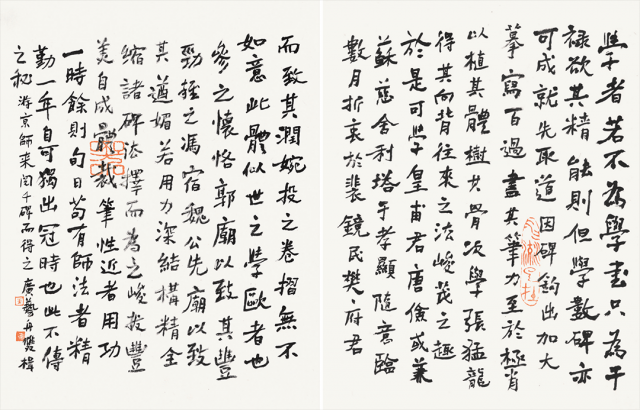 學者若不為學書只為干
祿欲其精能則但學數碑亦
可成就先取道因碑鉤出加大
摹寫百過盡其筆力至於極肖
以植其體樹其骨次學張猛龍
得其向背往來之法峻茂之趣
於是可學皇甫君唐儉或兼
蘇慈舍利塔于孝顯隨意臨
數月折衷於裴鏡民樊府君
而致其潤婉投之卷摺無不
如意此體似世之學歐者也
參之懷恪郭廟以致其豐
勁雜之馮宿魏公先廟以致
其遒媚若用力深結構精全
縮諸碑法擇而為之峻拔豐
美自成體裁筆性近者用功
一時餘則旬日苟有師法者精
勤一年自可獨出冠時也此不傳
之秘 游京師來閱千碑而得之 廣藝舟雙楫